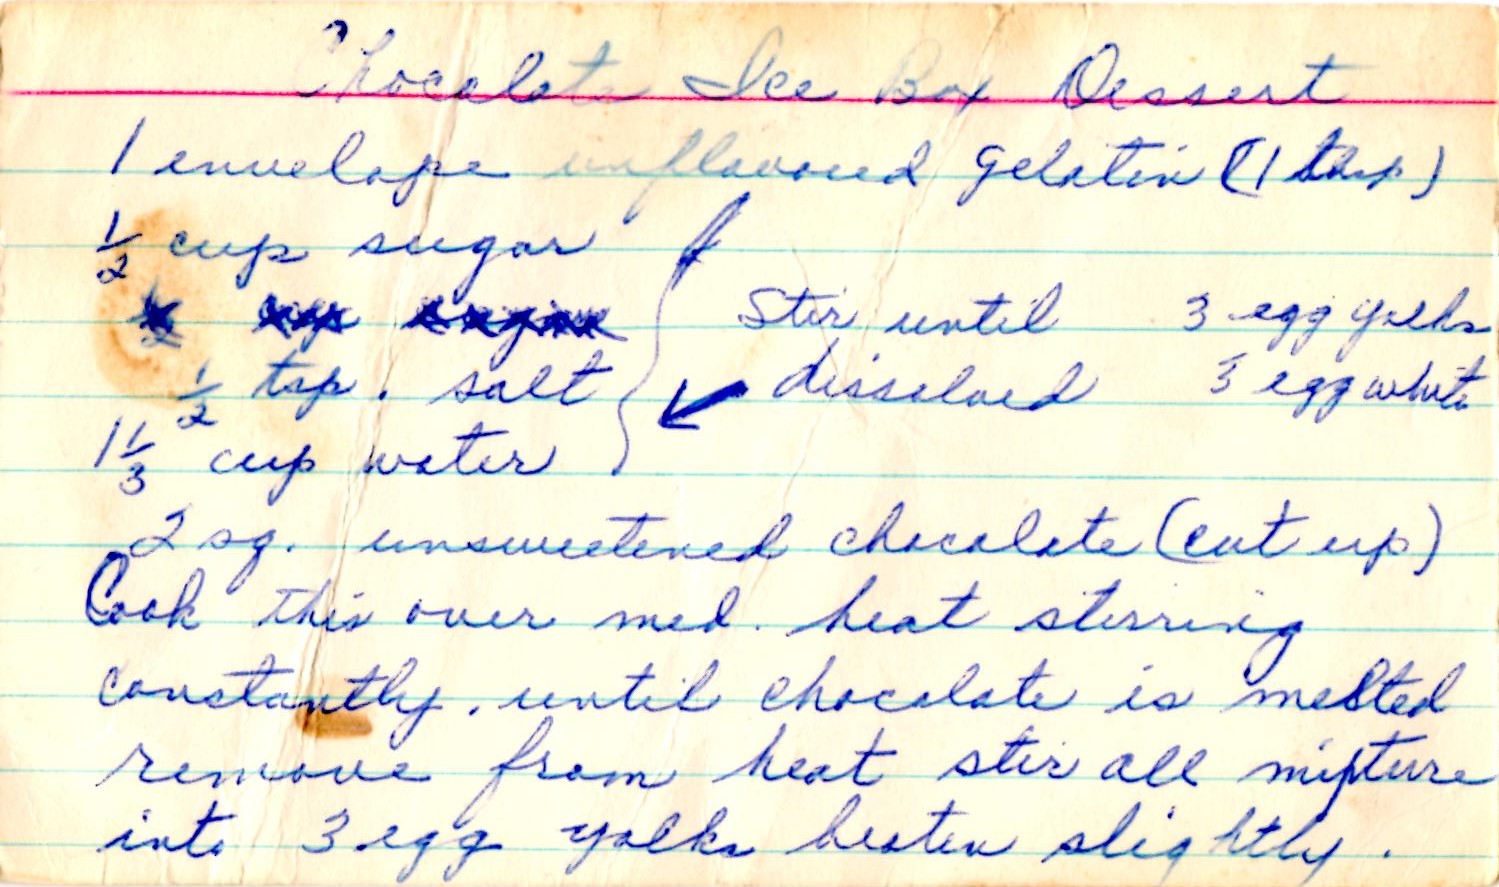 Chocolate Ice Box Dessert
1 envelope unflavoured gelatin (1 tbsp)
1/2 cup sugar
Stir until 3 egg yolks
1/2 tsp. salt dissolved 3 egg white
1 1/3 cup water
2 sq. unsweetened chocolate (cut up)
Cook this over med. heat stirring
constantly. until chocolate is melted
remove from heat stir all mixture
into 3 egg yolks beaten slightly.